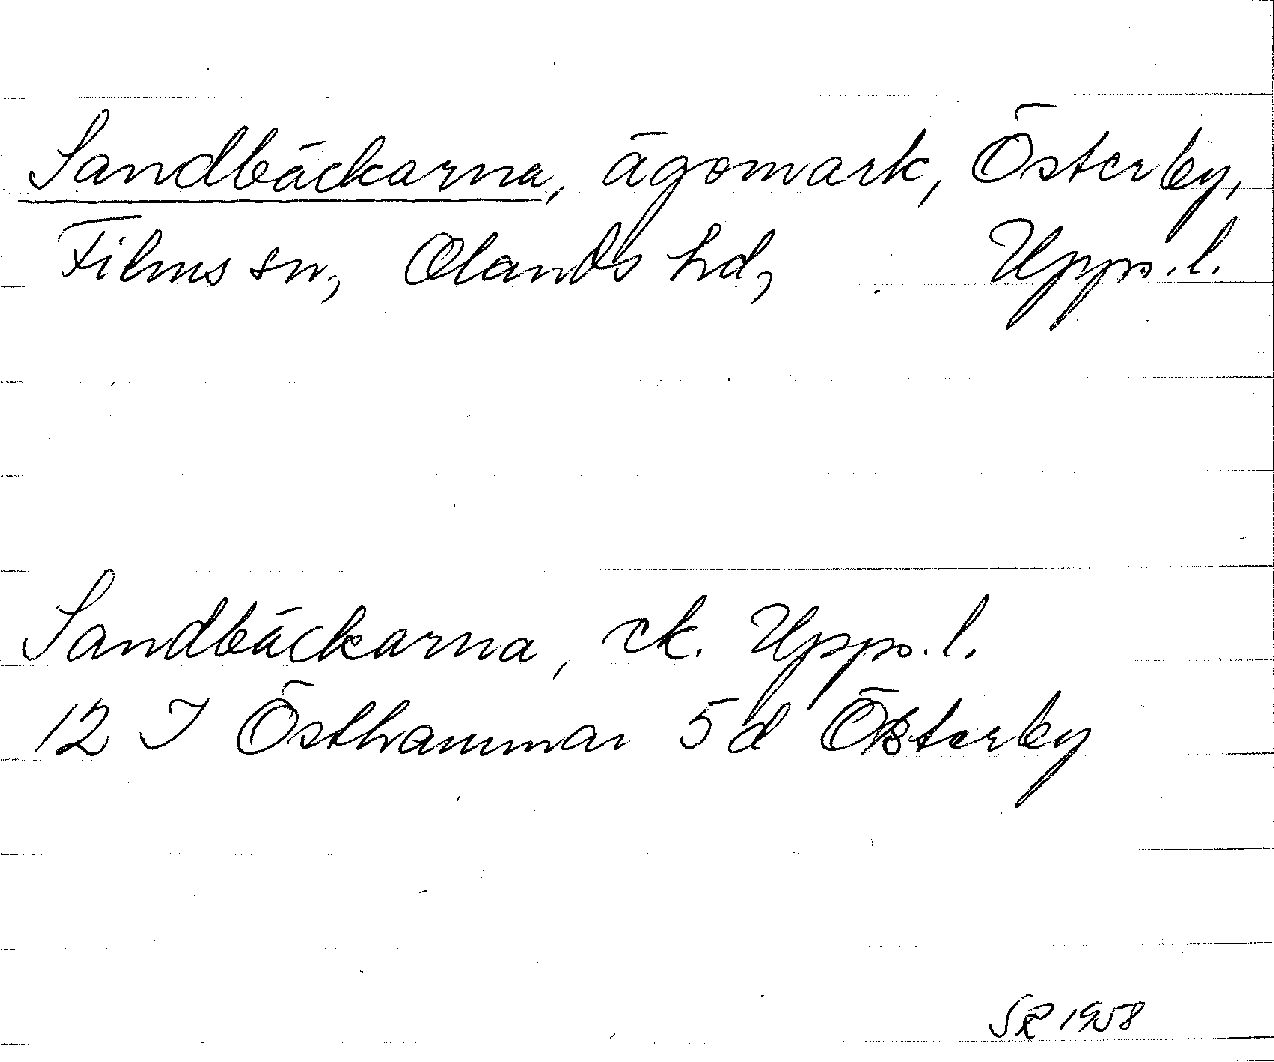 Sandbäckarna, ägomark, Österby,
Films sn, Olands hd, Upps. l.
Sandbäckarna, ek. Upps. l.
12 I Östhammar 5d Österby
SR 1958